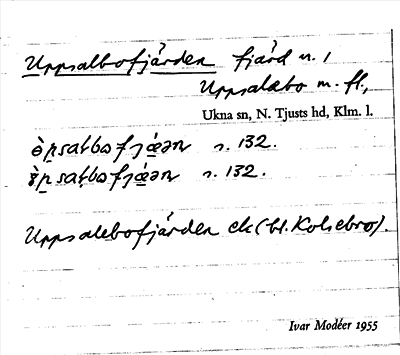 Uppsalbofjärden fjärd n. 1
Uppsalabo m. fl.,
Ukna sn, N. Tjusts hd, Klm. l.
s. 132.
s. 132.
Uppsalebofjärden ek (bl. Kolsebro).
Ivar Modéer 1955